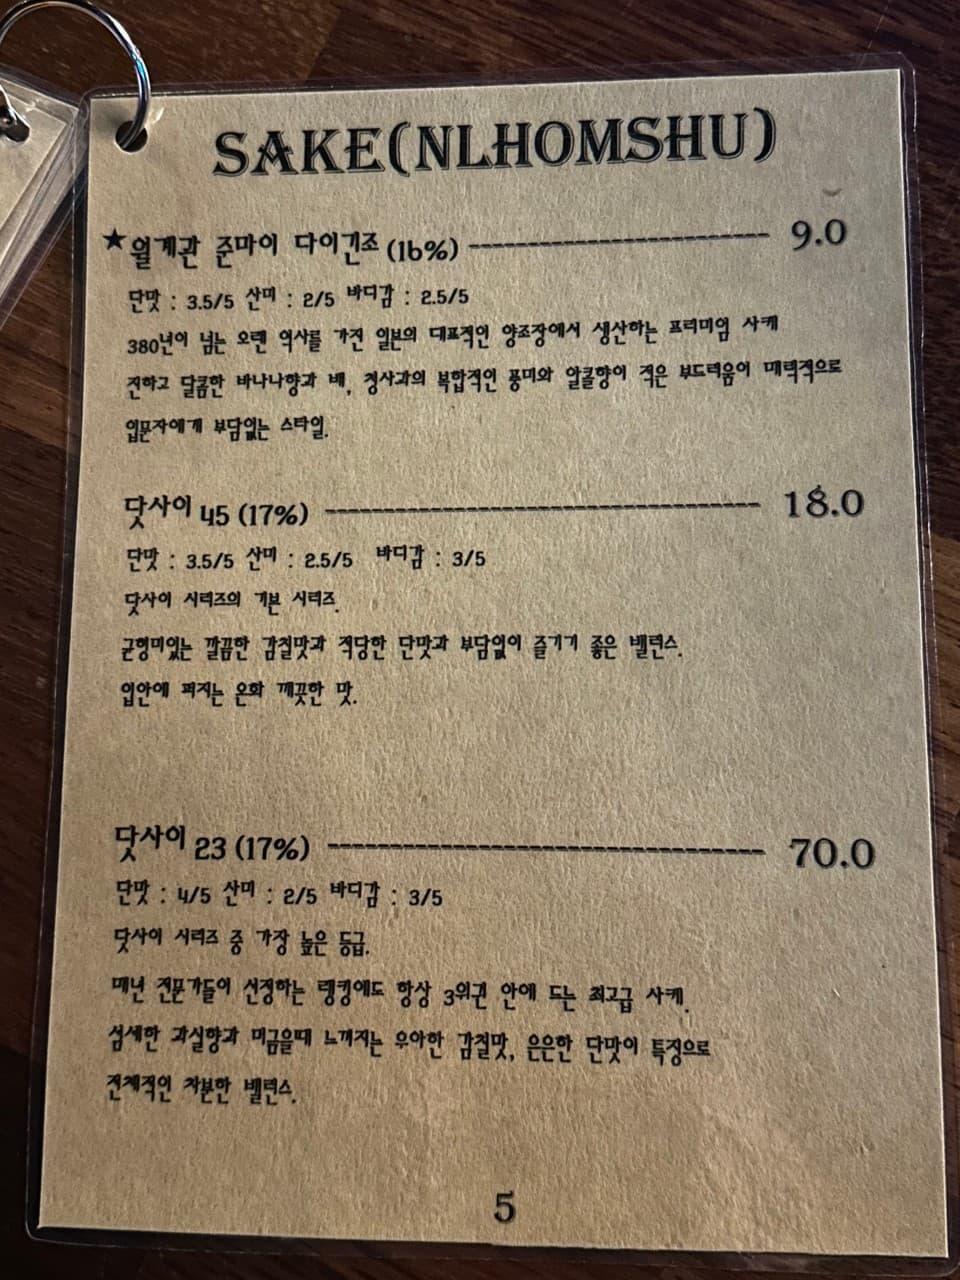 SAKE(NLHOMSHU)
★월계관 준마이 다이긴조 (16%) ------------------------------ 9.0
단맛 : 3.5/5 산미 : 2/5 바디감 : 2.5/5
380년이 넘는 오랜 역사를 가진 일본의 대표적인 양조장에서 생산하는 프리미엄 사케
진하고 달콤한 바나나향과 배, 청사과의 복합적인 풍미와 알콜향이 적은 부드러움이 매력적으로
입문자에게 부담없는 스타일.
닷사이 45 (17%) ------------------------------------------- 18.0
단맛 : 3.5/5 산미 : 2.5/5 바디감 : 3/5
닷사이 시리즈의 기본 시리즈.
균형미있는 깔끔한 감칠맛과 적당한 단맛과 부담없이 즐기기 좋은 밸런스.
입안에 퍼지는 온화 깨끗한 맛.
닷사이 23 (17%) ------------------------------------------- 70.0
단맛 : 4/5 산미 : 2/5 바디감 : 3/5
닷사이 시리즈 중 가장 높은 등급.
매년 전문가들이 선정하는 랭킹에도 항상 3위권 안에 드는 최고급 사케.
섬세한 과실향과 머금을때 느껴지는 우아한 감칠맛, 은은한 단맛이 특징으로
전체적인 차분한 밸런스.
5